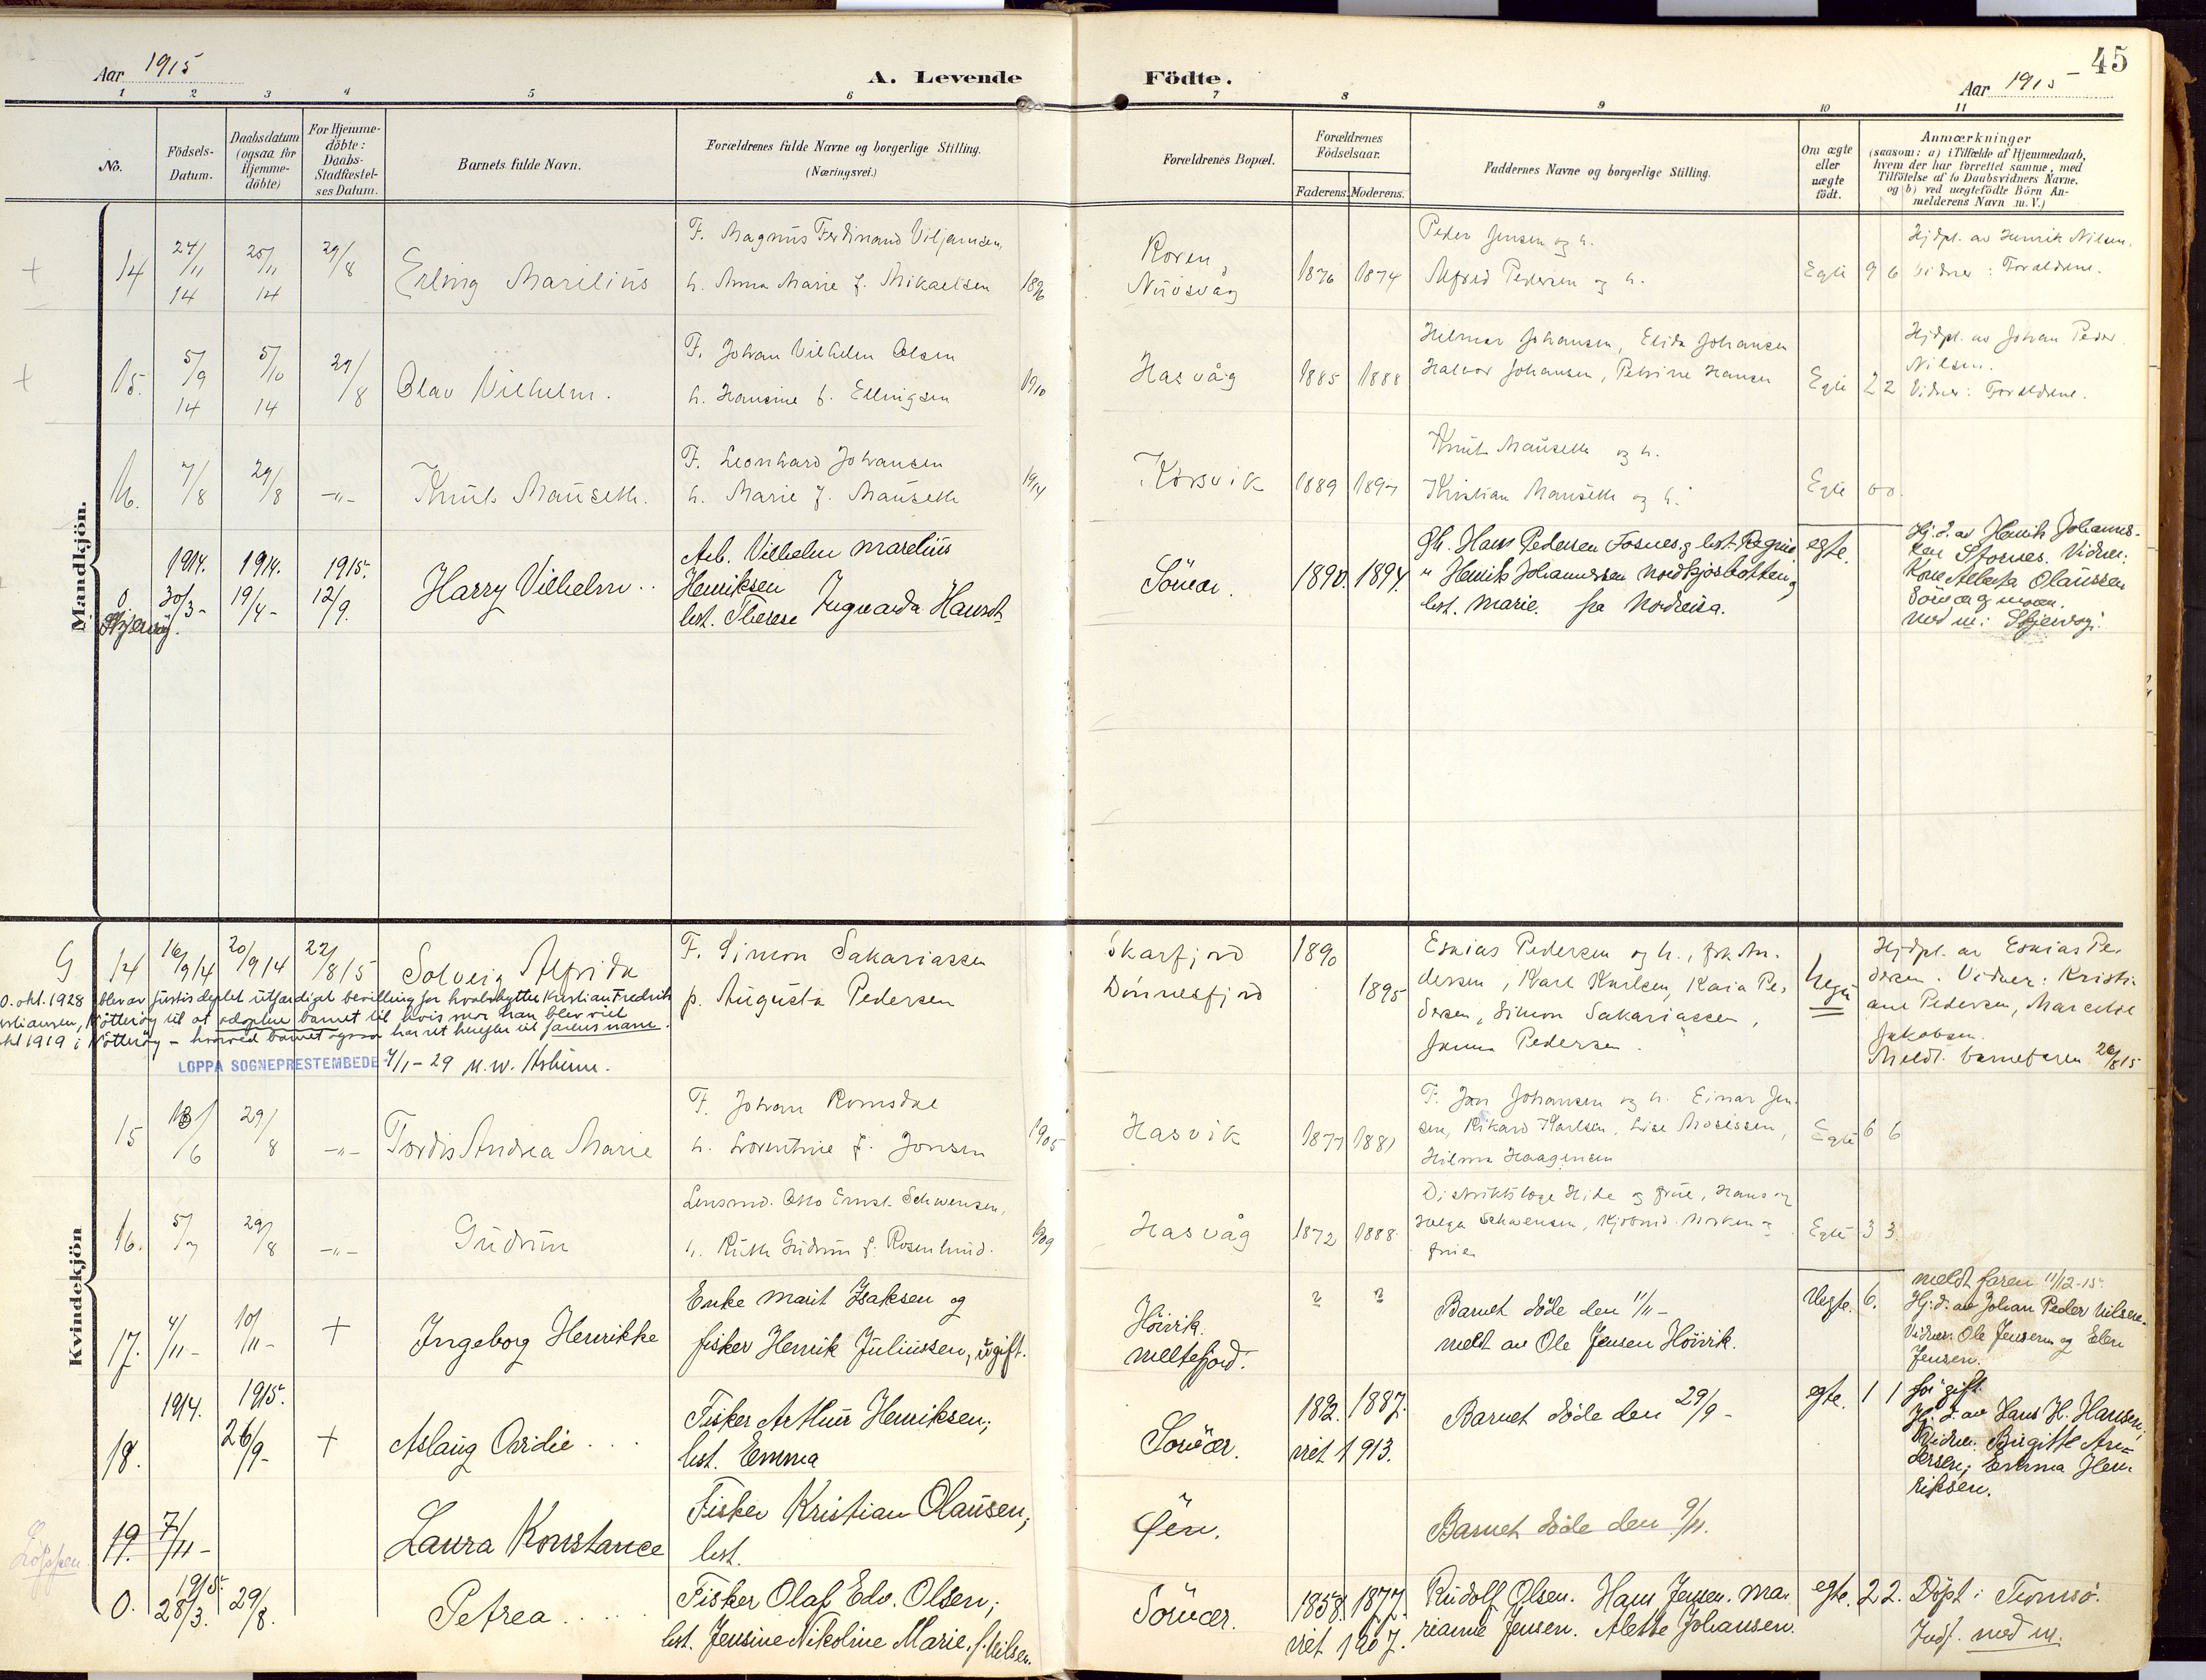 45
Aar 1915
A. Levende Födte.
Aar 1915
1 2 3 4 5 6 7 8 9 10 11
No.
Födsels-
Datum.
Daabsdatum
(ogsaa for
Hjemme-
döbte)
For Hjemme-
döbte:
Daabs-
Stadfæstel-
ses Datum.
Barnets fulde Navn.
Forældrenes fulde Navne og borgerlige Stilling.
(Næringsvei.)
Forældrenes Bopæl.
Forældrenes
Födselsaar.
Faderens. Moderens.
Faddernes Navne og borgerlige Stilling.
Om ægte
eller
uægte
födt.
Anmærkninger
(saasom: a) i Tilfælde af Hjemmedaab,
hvem der har forrettet samme, med
Tilföielse af to Daabsvidners Navne,
og b) ved uægtefödte Börn An-
melderens Navn m. V.)
Mandkjön.
+ 14 24/11 14 25/11 14 29/8
Erling Marilius
F. Magnus Ferdinand Viljamsen
h. Anna Marie f. Mikaelsen 1896
Koren,
Nuvsvåg
1876 1874
Peder Jensen og h.
Alfred Pedersen og h.
Egte 9 6
Hjdpt. av Henrik Nilsen.
Vidner: Foraldrene.
+ 15. 5/9 14 5/10 14 29/8
Olav Vilhelm.
F. Johan Vilhelm Olsen
h. Hansine f. Ellingsen 1910
Hasvåg
1885 1888
Helmer Johansen, Elida Johansen
Halvor Johansen, Petrine Hansen
Egte 2 2
Hjdpt. av Johan Peder
Nilsen.
Vidner: Foraldrene.
16. 7/8 29/8 -"-
Knut Mauseth.
F. Leonhard Johansen
h. Marie f. Mauseth 1914
Korsvik
1889 1897
Knut Mauseth og h.
Kristian Mauseth og h.
Egte 0 0.
0 Skjervøy.
1914. 30/3- 1914. 19/4- 1915. 12/9.
Harry Vilhelm..
Arb. Vilhelm Marelius
Henriksen
hst. Therese Ingvarda Hansd.
Sörvær.
1890. 1894.
Gh. Hans Pedersen Fosnes og hst. Regine
" Henrik Johannessen Nordkjosbotten og
hst. Marie. fra Nordreisa.
egte.
Hj. d. av Henrik Johannes-
sen Stornes. Vidner:
Kone Alberta Olaussen
Sörvær og moren.
Med m: Skjervøy.
Kvindekjön
G 14 16/9 14 20/9 14 22/8 15
Solveig Alfrida
F. Simon Sakariassen
p. Augusta Pedersen
Skarfjord
Dönnesfjord
1890
1895
Esaias Pedersen og h., frk. An-
dersen, Karl Karlsen, Kaia Pe-
dersen, Simon Sakariassen,
Janna Pedersen.
Uegte
Hjdpt. av Esaias Pe-
dersen. Vidner: Kristi-
ane Pedersen, Marcelie
Jakobsen.
Meldt. barnefaren 26/8 15
0. okt. 1928 blev av justisdeptet utfærdiget bevilling for hvalskytter Kristian Fredrik
stiansen, Nötteröy til at adoptere barnet til hvis mor han blev viet
okt 1919 i Nötteröy - hvorved barnet ogsaa har ret hengter til farens navn.
LOPPA SOGNEPRESTEMBEDE 4/1-29
15 13/6 29/8 -"-
Tordis Andrea Marie
F. Johan Romsdal
h. Lorentine f. Jonsen 1905
Hasvik
1877 1881
F. Jan Johansen og h. Einar Jen-
sen, Rikard Karlsen, Lise Mosessen,
Hilma Haagensen
Egte 6 6
16. 5/7 29/8 -"-
Gudrun
Lensmd. Otto Ernst Schwensen,
h. Ruth Gudrun f. Rosenlund. 1909
Hasvåg
1872 1888
Distriktslæge Hide og frue, Hans og
Helga Schwensen, Kjöbmd. Morken og
frue
Egte 3 3
17. 4/11- 10/11- +
Ingeborg Henrikke
Enke Marit Isaksen og
fisker Henrik Juliussen, ugift.
Höivik.
Meltefjord.
? ?
Barnet döde den 11/11-
meldt av Ole Jensen Höivik.
Uegte. 6.
meldt faren 11/12-15.
Hj. d. av Johan Peder Nilsen.
Vidner. Ole Jensen og Elen
Jensen.
18. 1914. 1915. 26/9- +
Aslaug Ovidie . . .
Fisker Arthur Henriksen;
hst. Emma
Sörvær.
1887.
viet 1913.
Barnet döde den 29/9-
egte. 1 1
för gift.
Hj. d. av Hans H. Hansen;
Vidner. Birgitte An-
dersen; Emma Hen-
riksen.
19. 7/11-
Laura Konstance
Fisker Kristian Olausen;
hst.
Öen.
Barnet döde den 9/11.
Loppen
0. 1915. 28/3. 29/8.
Petrea . . . . .
Fisker Olaf Edv. Olsen;
hst. Jensine Nikoline Marie, f. Nilsen.
Sörvær.
1858. 1877.
viet 1907.
Rudolf Olsen. Hans Jensen. Ma-
rianne Jensen. Alette Johansen.
egte. 2 2.
Döpt i Tromsö.
Indf. med m.